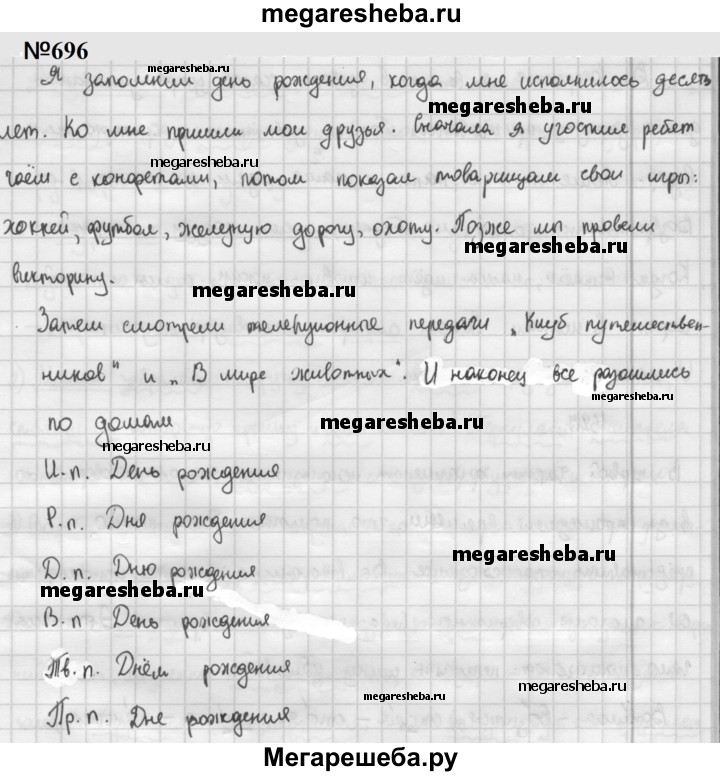 megaresheba.ru
№696
megaresheba.ru
Я запомнил день рождения, когда мне исполнилось десять
megaresheba.ru
лет. Ко мне пришли мои друзья. Вначала я угостил ребят
megaresheba.ru
чаем с конфетами, потом показал товарищам свои игры:
хоккей, футбол, железную дорогу, охоту. Позже мы провели
megaresheba.ru
викторину.
megaresheba.ru
Затем смотрели телевизионные передачи „Клуб путешествен-
ников" и „В мире животных". И наконец все разошлись
megaresheba.ru
по домам
megaresheba.ru
megaresheba.ru
И.п. День рождения
Р.п. Дня рождения
megaresheba.ru
Д.п. Дню рождения
megaresheba.ru
В.п День рождения
Тв.п. Днём рождения
megaresheba.ru
megaresheba.ru
Пр.п. Дне рождения
Мегарешеба.ру